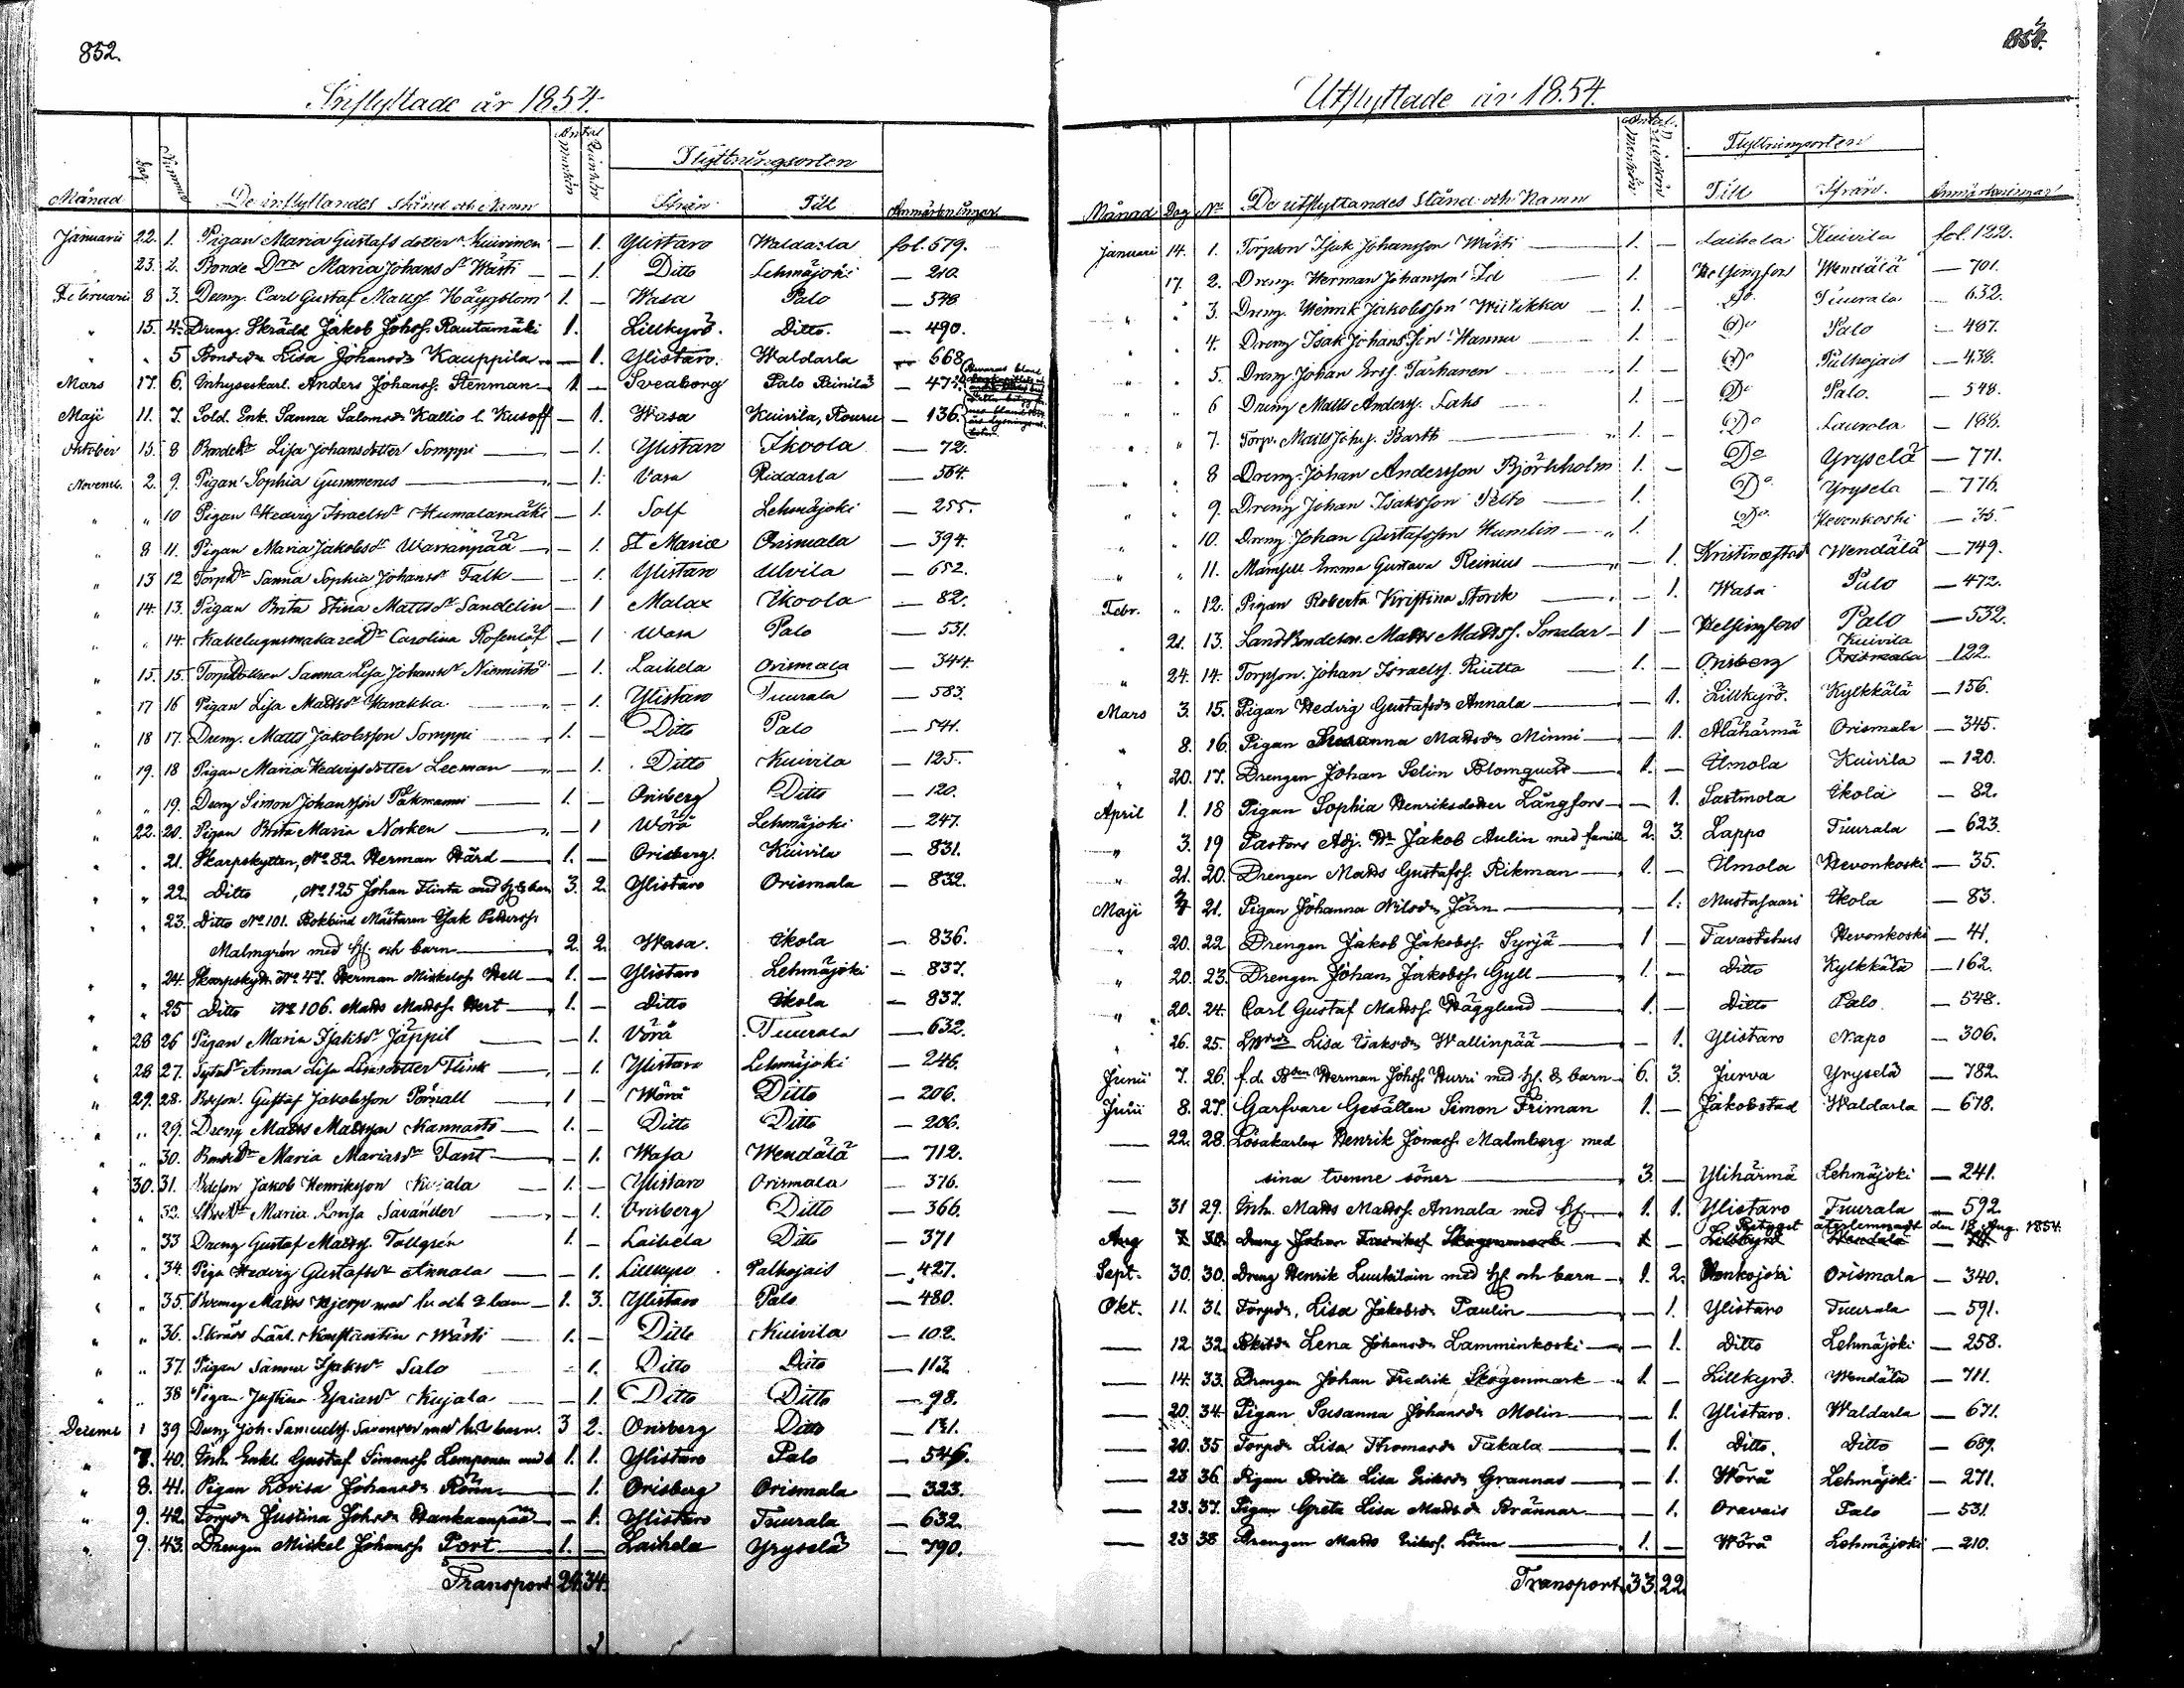 852.
Inflyttade år 1854.
Månad Dag Nummer De inflyttandes stånd och Namn Antal Mankön Quinkön Flyttningsorten Ifrån Till Anmärkningar
Januarii 22. 1. Pigan Maria Gustafs dotter Kuivinen — 1. Ylistaro Waldarla fol. 579.
" 23. 2. Bonde Drn Maria Johans dr Wästi — 1. Ditto Lehmäjoki — 210.
Februarii 8 3. Dreng. Carl Gustaf Matts. Häggblom 1. — Wasa Palo — 548
" 15. 4. Dreng. Skrädd Jakob Johss. Rautamäki 1. Lillkyrö. Ditto. — 490.
" " 5 Bondedr Lisa Johansdr Kauppila — 1. Ylistaro. Waldarla — 668
Mars 17. 6. Inhyseskarl. Anders Johanss. Stenman 1. — Sveaborg Palo Reinilä — 472
Maji 11. 7. Sold. Enk. Sanna Salomsdr Kallio l. Kusoff — 1. Wasa Kuivila, Rouru — 136.
Oktober 15. 8 Bondedr Lisa Johansdotter Somppi — 1. Ylistaro Ikoola — 72.
Novemb. 2. 9. Pigan Sophia Gummerus — 1. Vasa Riddarla — 564.
" " 10 Pigan Hedvig Israelsdr Humalamäki — 1. Solf Lehmäjoki — 255.
" 8 11. Pigan Maria Jakobsdr Warianpää — 1. St Mariæ Orismala — 394.
" 13 12 Torpdr Sanna Sophia Johansdr Falk — 1. Ylistaro Ulvila — 652.
" 14. 13. Pigan Brita Stina Mattsdr Sandelin — 1 Malax Ikoola — 82.
" " 14. Kakelugnsmakaredr Carolina Rosenlöf — 1 Wasa Palo — 531.
" 15. 15. Torpdottren Sanna Lisa Johansdr Niemistö — 1. Laihela Orismala — 344.
" 17 16 Pigan Lisa Mattsdr Harakka — 1. Ylistaro Tuurala — 583.
" 18 17. Dreng. Matts Jakobsson Somppi 1. — Ditto Palo — 541.
" 19. 18 Pigan Maria Hedvigsdotter Leeman — 1. Ditto Kuivila — 125.
" " 19. Dreng Simon Johansson Pakmanni 1. — Orisberg Ditto — 120.
" 22. 20. Pigan Brita Maria Norken — 1 Wörå Lehmäjoki — 247.
" " 21. Skarpskytten, No 82. Herman Hård 1. — Orisberg. Kuivila — 831.
" " 22. Ditto, No 125 Johan Flinta med h. o. barn 3. 2. Ylistaro Orismala — 832.
" " 23. Ditto No 101. Bokbind. Mästaren Isak Pederss.
Malmgrén med H. och barn 2. 2. Wasa. Ikola — 836.
" " 24. Skarpskytt. No 47. Herman Mickelss. Hell 1. — Ylistaro Lehmäjoki — 837.
" " 25 Ditto No 106. Matts Mattss. Hert 1. — Ditto Ikola — 837.
" 28 26 Pigan Maria Isaksdr Jäppil — 1. Vörå Tuurala — 632.
" 28 27. Anna Lisa Lisasdotter Flink — 1. Ylistaro Lehmäjoki — 246.
" 29. 28. Bdeson. Gustaf Jakobsson Pörnäll 1 — Wörå Ditto — 206.
" " 29. Dreng Matts Mattsson Kannasto 1. — Ditto Ditto — 206.
" " 30. Bondedr Maria Mariasdr Fant — 1. Wasa Wendälä — 712.
" 30. 31. Bdeson Jakob Henriksson Kujala 1. — Ylistaro Orismala — 376.
" " 32. Maria Lovisa Savander — 1. Orisberg Ditto — 366.
" " 33 Dreng Gustaf Matts. Tallgrén 1. — Laihela Ditto — 371
" " 34. Piga Hedvig Gustafsdr Annala — 1. Lillkyro Palhojais — 427.
" " 35. Matts Hjerp med hu och 2 barn 1. 3. Ylistaro Palo — 480.
" " 36. Konstantin Wästi 1. — Ditto Kuivila — 102.
" " 37. Pigan Sanna Isaksdr Salo — 1. Ditto Ditto — 113.
" " 38 Pigan Justina Esaiasdr Kujala — 1. Ditto Ditto — 98.
Decemb. 1 39 Dreng Joh. Samuelss. Savander med h. o barn. 3 2. Orisberg Ditto — 131.
" 7. 40. Inh. Enkl. Gustaf Simonss. Lemponen med 1. 1. Ylistaro Palo — 546.
" 8. 41. Pigan Lovisa Johansdr Rönn — 1. Orisberg Orismala — 323.
" 9. 42. Torpdr Justina Johsdr Hankaanpää — 1. Ylistaro Tuurala — 632.
" 9. 43. Drengen Mickel Johanss. Port 1. — Laihela Yryselä — 790.
Transport 29. 34.
Utflyttade år 1854.
Månad Dag No De utflyttandes Stånd och Namn Antal. Mankön Quinkön Flyttningsorten Till Ifrån. Anmärkningar
Januari 14. 1. Torpson Isak Johansson Wästi 1. — Laihela Kuivila fol. 122.
17. 2. Dreng. Herman Johansson Id 1. Helsingfors Wendälä — 701.
" " 3. Dreng. Henrik Jakobsson Wiitikka 1. — Do Tuurala — 632.
" " 4. Dreng Isak Johansson Hannu 1. Do Palo — 487.
" " 5. Dreng. Johan Ers. Tarhanen 1. — Do Palhojais — 438.
" " 6 Dreng Matts Anderss. Laks 1. — Do Palo. — 548.
" " 7. Torp. Matts Johss. Barth 1. — Do Laurola — 188.
" " 8 Dreng. Johan Andersson Björkholm 1. — Do Yryselä — 771.
" " 9. Dreng Johan Isaksson Pelto 1. Do Yrysela — 776.
" " 10. Dreng Johan Gustafsson Humlin 1. Do Hevonkoski — 35.
" " 11. Mamsell Emma Gustava Reinius — 1. Kristinestad Wendälä — 749.
Febr. " 12. Pigan Roberta Kristina Storck — 1. Wasa Palo — 472.
" 21. 13. Matts Mattss. Smalar 1 — Helsingfors Palo — 532.
" 24. 14. Torpson. Johan Israelss. Riutta 1. — Orisberg Kuivila Orismala — 122.
Mars 3. 15. Pigan Hedvig Gustafsdr Annala — 1. Lillkyrö. Kylkkälä — 156.
" 8. 16. Pigan Susanna Mattsdr Minni — 1. Alahärmä Orismala — 345.
" 20. 17. Drengen Johan Selin Blomquist 1. — Ilmola Kuivila — 120.
April 1. 18 Pigan Sophia Henriksdotter Långfors — 1. Sastmola Ikola — 82.
" 3. 19 Pastors Adj. Hr Jakob Aulin med familie 2. 3. Lappo Tuurala — 623.
" 21. 20. Drengen Matts Gustafs. Rikman 1. — Ilmola Hevonkoski — 35.
Maji 21. Pigan Johanna Nilsdr Järn — 1. Mustasaari Ikola — 83.
" 20. 22 Drengen Jakob Jakobss. Syrjä 1 — Tavastehus Hevonkoski — 41.
" 20. 23. Drengen Johan Jakobss. Gyll 1. — Ditto Kylkkälä — 162.
" 20. 24. Carl Gustaf Mattss. Hägglund 1. — Ditto Palo — 548.
" 26. 25. Lisa Isaksdr Wallinpää — 1. Ylistaro Napo — 306.
Junii 7. 26. f.d. Bden Herman Johss. Hurri med H. & barn 6. 3. Jurva Yryselä — 782.
Julii 8. 27. Garfvare Gesällen Simon Friman 1. — Jakobstad Waldarla — 678.
— 22. 28. Lösakarlen Henrik Jonass. Malmberg med
— sina tvenne söner 3. — Ylihärmä Lehmäjoki — 241.
— 31 29. Inh. Matts Mattss. Annala med H. 1. 1. Ylistaro Tuurala — 592
Betyget återlemnadt den 18 Aug. 1854.
Aug 7 30. Dreng Johan Fredriks. Skogenmark 1 — Lillkyrö Wendälä
Sept. 30. 30. Dreng Henrik Luukilain med H. och barn 1. 2. Honkojoki Orismala — 340.
Okt. 11. 31. Torpdr, Lisa Jakobsdr Paulin — 1. Ylistaro Tuurala — 591.
— 12 32. Lena Johansdr Lamminkoski — 1. Ditto Lehmäjoki — 258.
— 14. 33. Drengen Johan Fredrik Skogenmark 1. — Lillkyrö. Wendälä — 711.
— 20. 34. Pigan Susanna Johansdr Molin — 1. Ylistaro. Waldarla — 671.
— 20. 35 Torpdr Lisa Thomasdr Takala — 1. Ditto. Ditto — 689.
— 23 36. Pigan Brita Lisa Eriksdr Grannas — 1. Wörå Lehmäjoki — 271.
— 23. 37. Pigan Greta Lisa Mattsdr Brännar — 1. Oravais Palo — 531.
— 23 38 Drengen Matts Erikss. Lönn 1. — Wörå Lehmäjoki — 210.
Transport 33. 22.